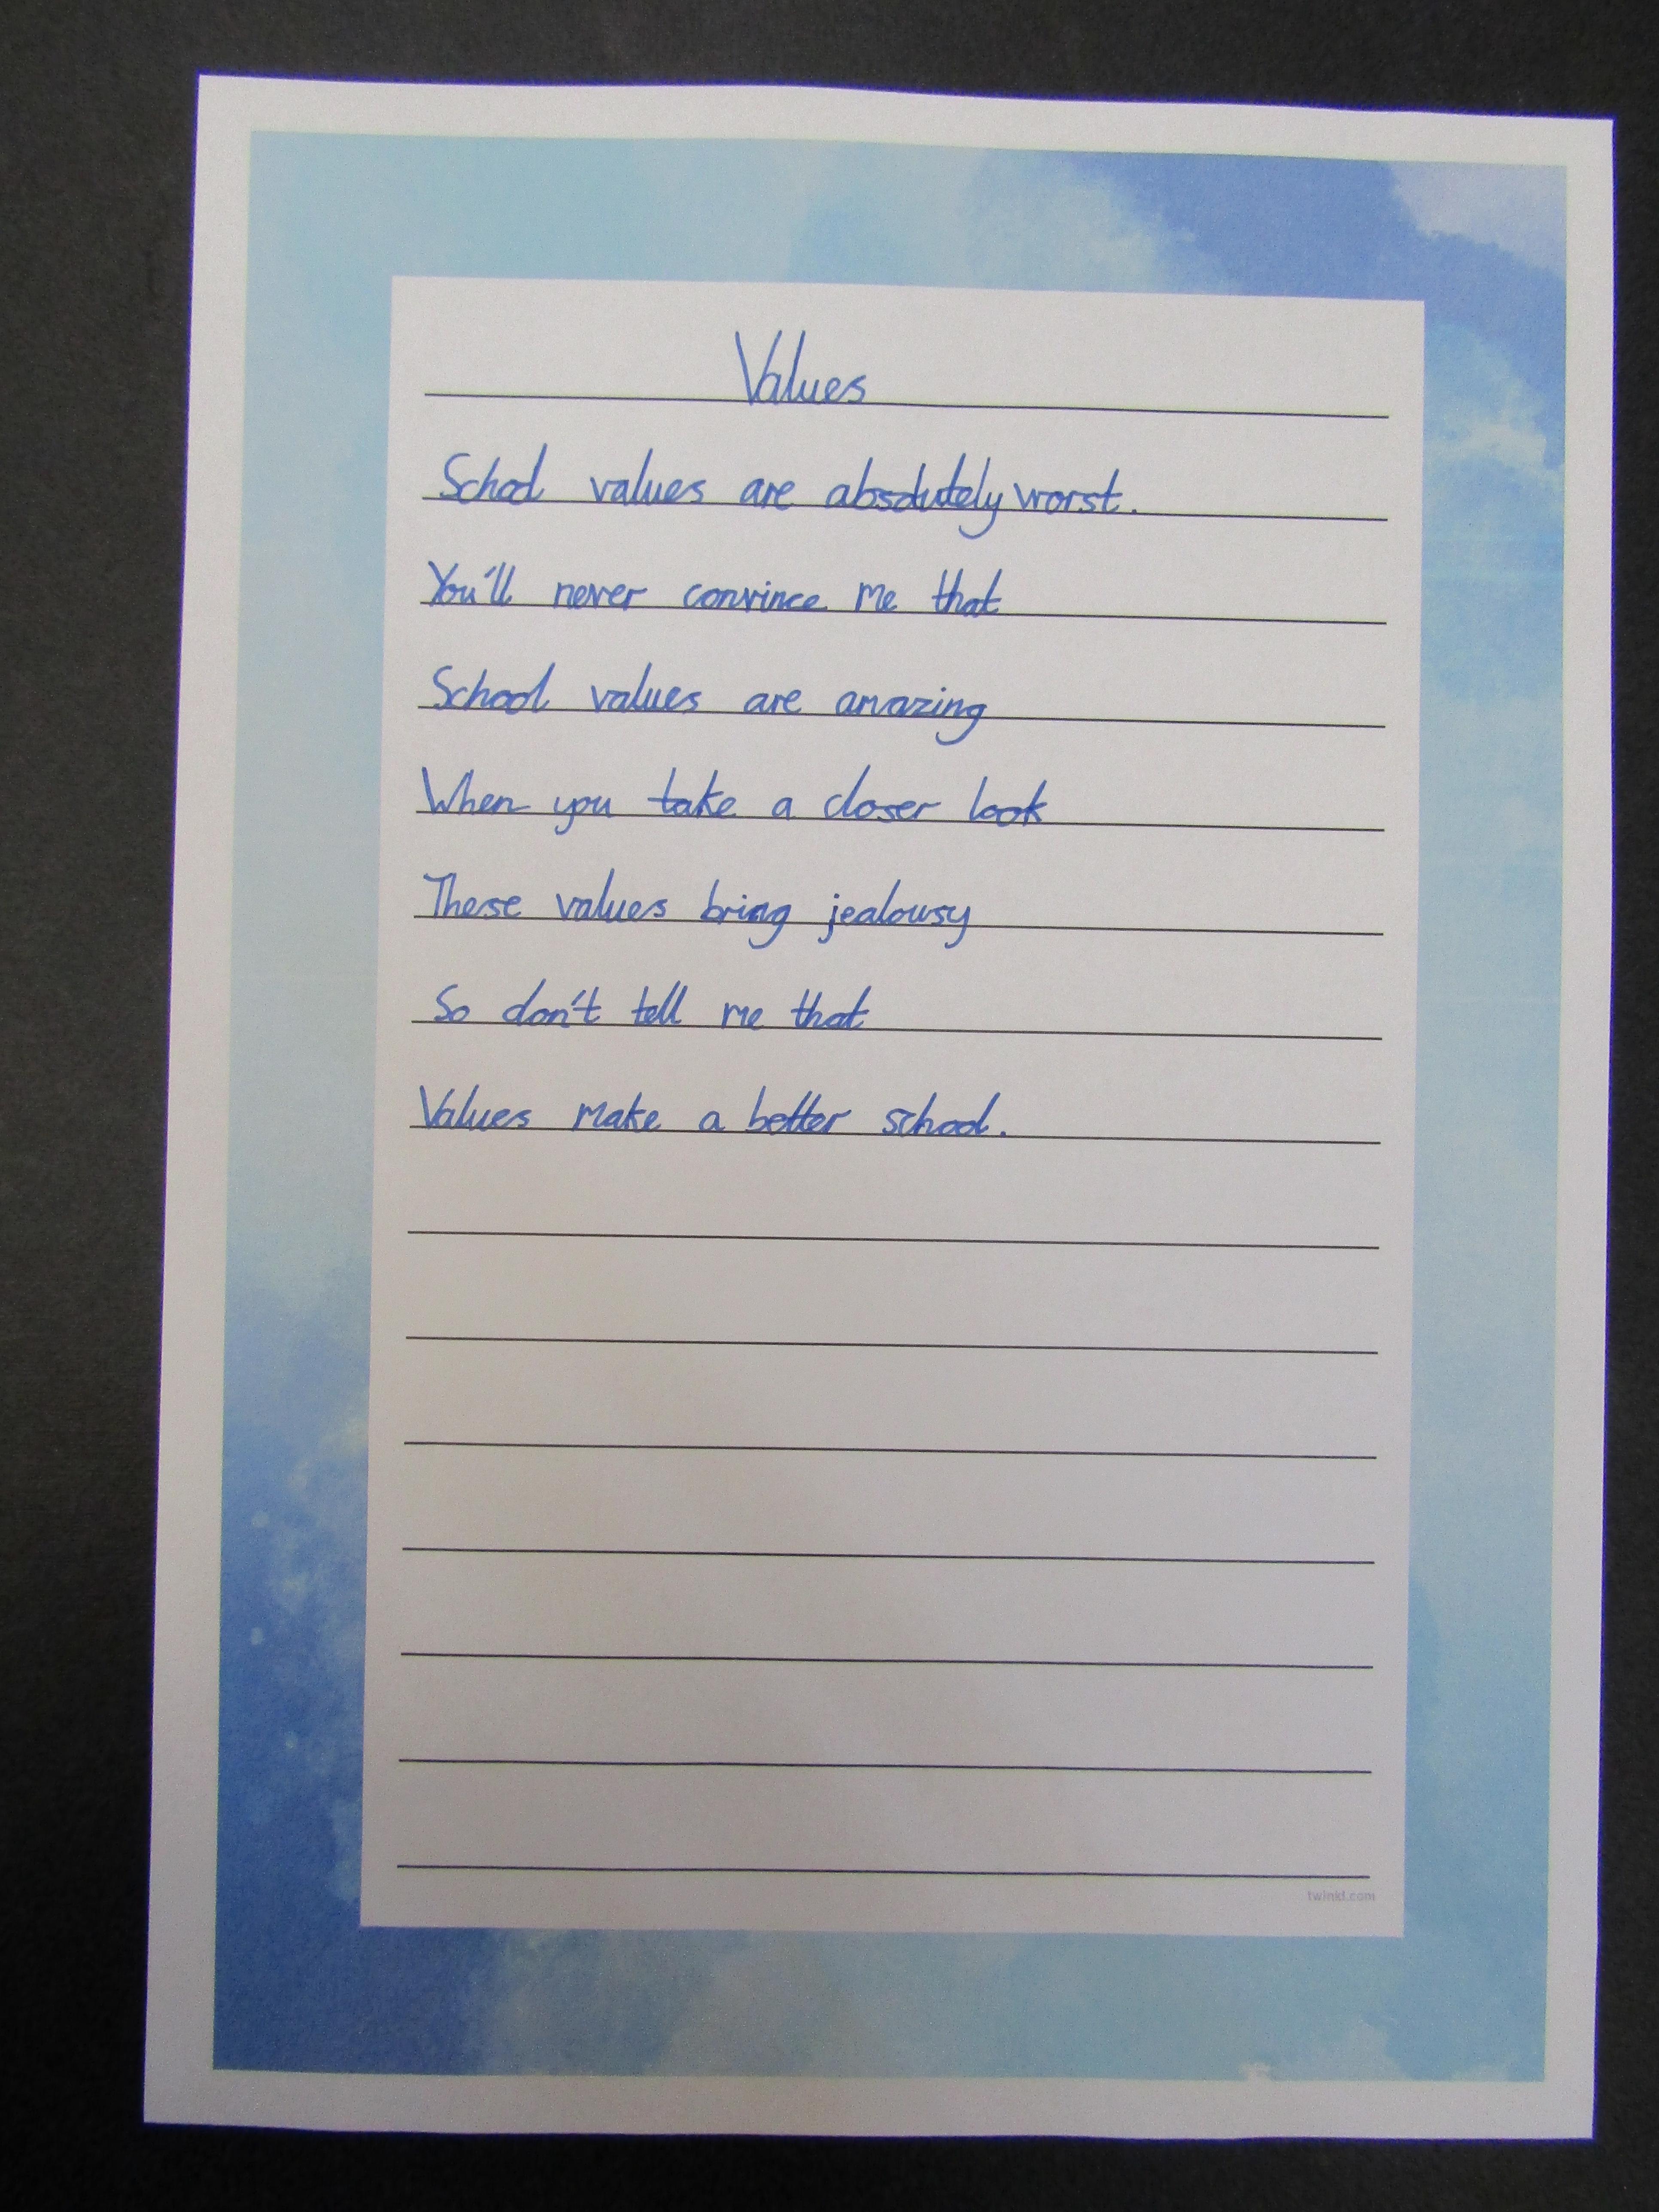 Values
School values are absolutely worst.
You'll never convince me that
School values are amazing
When you take a closer look
These values bring jealousy
So don't tell me that
Values make a better school.
twinkl.com